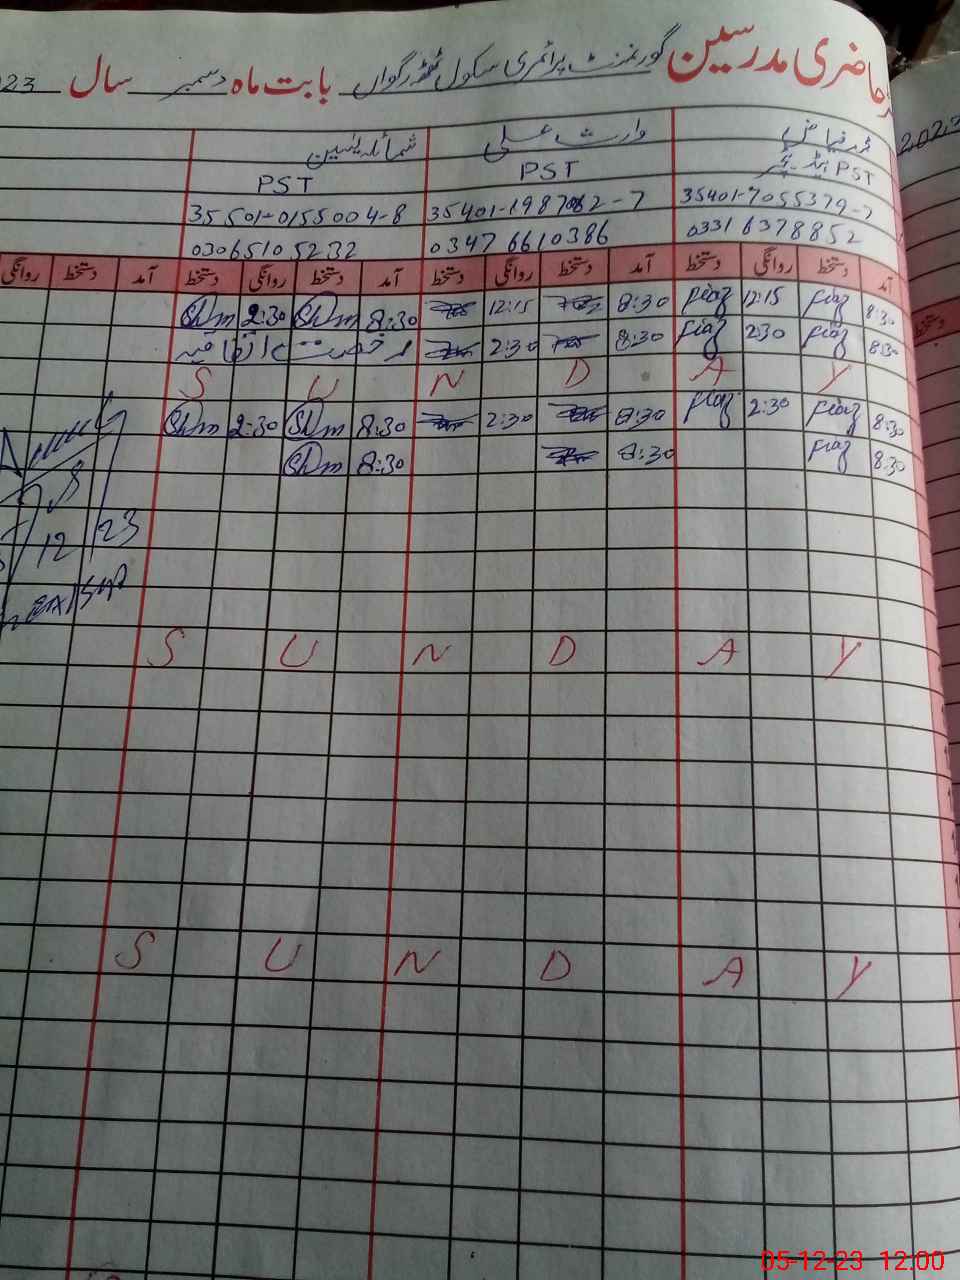 حاضری مدرسین گورنمنٹ پرائمری سکول ٹھٹھہ رگواں بابت ماہ دسمبر سال 23
2023
فیاض وارث علی شمائلہ یٰسین
PST ہیڈ ٹیچر PST PST
35401-7055379-7 35401-1987082-7 35501-0155004-8
03316378852 03476610386 03065105232
آمد دستخط روانگی دستخط آمد دستخط روانگی دستخط آمد دستخط روانگی دستخط آمد دستخط روانگی
8:30 fiaz 12:15 fiaz 8:30 12:15 8:30 Shm 2:30 Shm
8:30 fiaz 2:30 fiaz 8:30 2:30 رخصت اتفاقیہ
S U N D A Y
8:30 fiaz 2:30 fiaz 8:30 2:30 8:30 Shm 2:30 Shm
8:30 fiaz 8:30 8:30 Shm
12 23
S U N D A Y
S U N D A Y
05-12-23 12.00